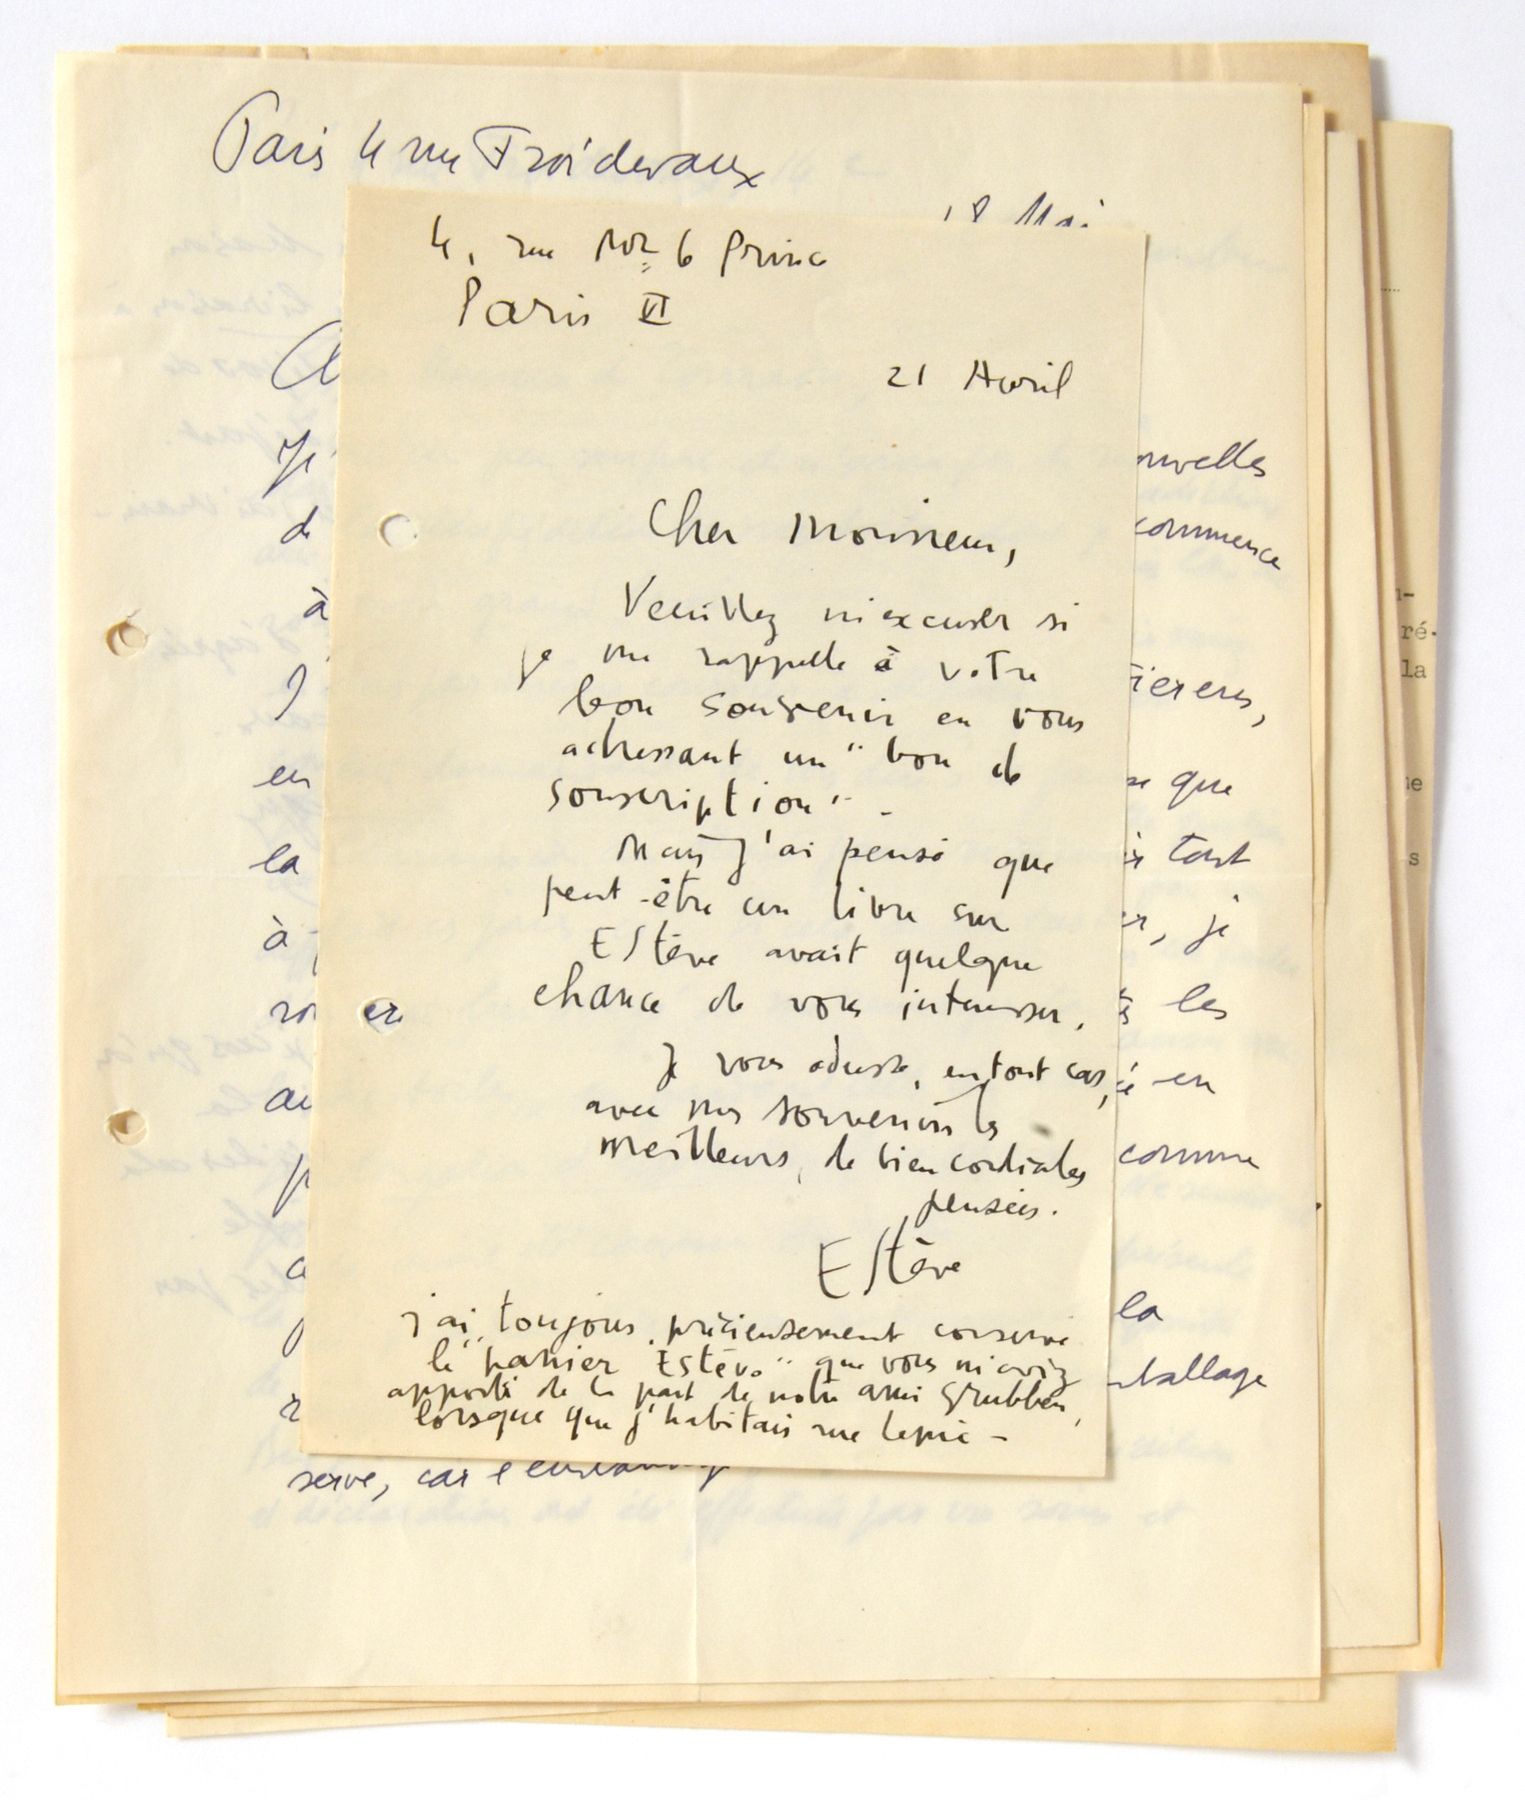 Paris 4 rue Froidevaux
18 Mai
4, rue Mr le Prince
Paris VI
21 Avril
Cher Monsieur,
Veuillez m'excuser si
je me rappelle à votre
bon souvenir en vous
adressant un "bon de
souscription".
Mais j'ai pensé que
peut-être un livre sur
Estève avait quelque
chance de vous intéresser.
Je vous adresse, en tout cas,
avec mes souvenirs les
meilleurs, de bien cordiales
pensées.
Estève
j'ai toujours précieusement conservé
le "panier Estève" que vous m'aviez
apporté de la part de notre ami Grubben,
lorsque que j'habitais rue Lepic -
Je
ouvelles
de
commence
à
J
ièreres,
en
se que
la
tout
à
er, je
ro
er
les
au
é en
p
comme
la
ballage
serve, car l'
ré-
la